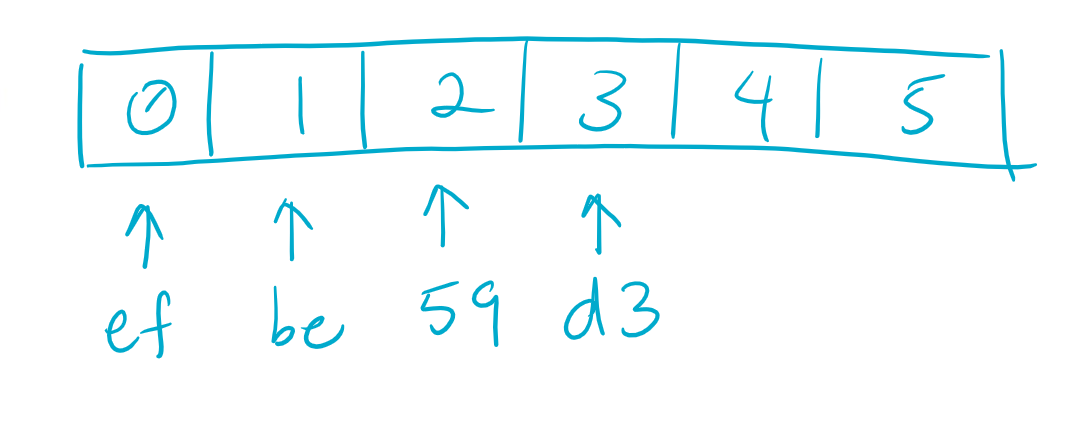 0 1 2 3 4 5
ef be 59 d3